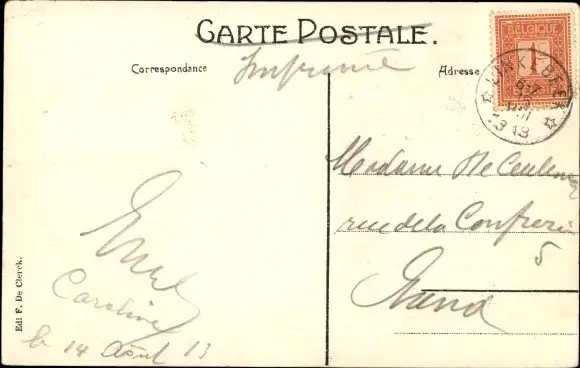 CARTE POSTALE.
Correspondance
Imprimé
Adresse
BELGIQUE
1
6-7
VIII
1913
Madame De Ceulener
rue de la Confrérie
5
Gand
Emile
Caroline
le 14 Août 13
Edit F. De Clerck.